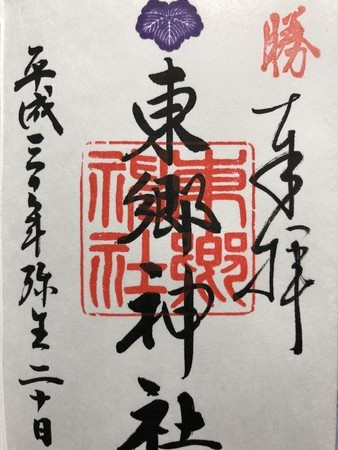 勝
奉拝
東郷神社
東郷神社
平成三十年弥生二十日